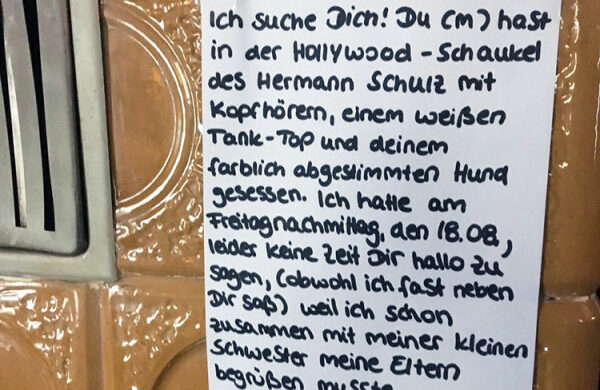 Ich suche Dich! Du (m) hast
in der Hollywood-Schaukel
des Hermann Schulz mit
Kopfhörern, einem weißen
Tank-Top und deinem
farblich abgestimmten Hund
gesessen. Ich hatte am
Freitagnachmittag, den 18.08.,
leider keine Zeit Dir hallo zu
sagen, (obwohl ich fast neben
Dir saß) weil ich schon
zusammen mit meiner kleinen
Schwester meine Eltern
begrüßen musste